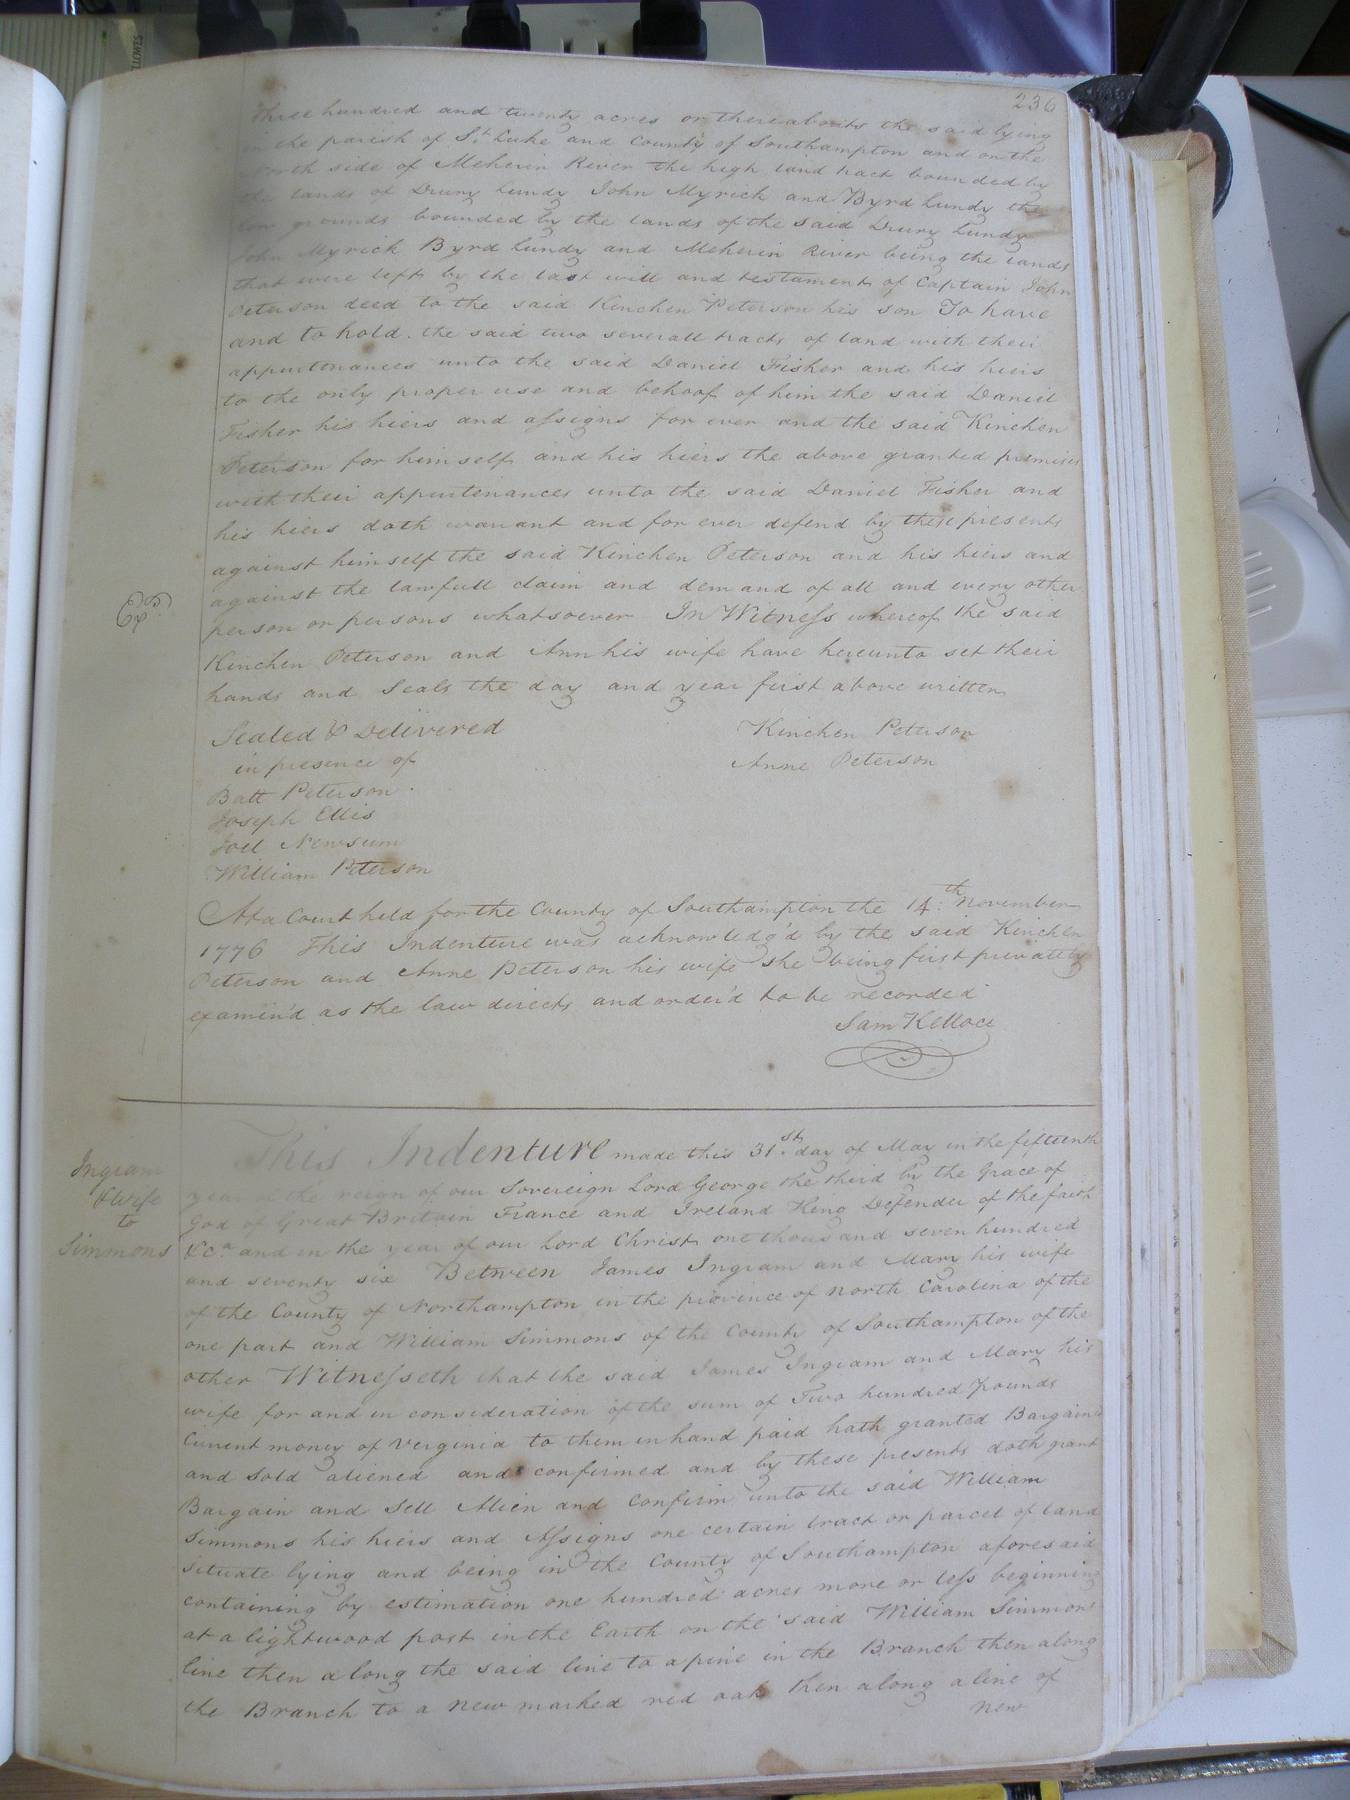 236
Three hundred and twenty acres or thereabouts the said lying
in the parish of St. Luke and County of Southampton and on the
North side of Meherin River the high land tract bounded by
the lands of Drury Lundy John Myrick and Byrd Lundy the
low grounds bounded by the lands of the said Drury Lundy
John Myrick Byrd Lundy and Meherin River being the lands
that were left by the last will and testament of Captain John
Peterson deed to the said Kinchen Peterson his son To have
and to hold the said two severall tracts of land with their
appurtenances unto the said Daniel Fisher and his hiers
to the only proper use and behoof of him the said Daniel
Fisher his hiers and assigns for ever and the said Kinchen
Peterson for himself and his hiers the above granted premises
with their appurtenances unto the said Daniel Fisher and
his hiers doth warrant and for ever defend by these presents
against himself the said Kinchen Peterson and his hiers and
against the lawfull claim and demand of all and every other
person or persons whatsoever In Witness whereof the said
Kinchen Peterson and Ann his wife have hereunto set their
hands and Seals the day and year first above written
Sealed & Delivered Kinchen Peterson
in presence of Anne Peterson
Batt Peterson
Joseph Ellis
Joel Newsum
William Peterson
At a Court held for the County of Southampton the 14th November
1776 This Indenture was acknowledg'd by the said Kinchen
Peterson and Anne Peterson his wife she being first privately
examin'd as the law directs and order'd to be recorded
Sam Kellock
Ingram
& Wife
to
Simmons
This Indenture made this 31st day of May in the fifteenth
year of the reign of our Sovereign Lord George the third by the Grace of
God of Great Britain France and Ireland King Defender of the faith
&ca and in the year of our Lord Christ one thousand seven hundred
and seventy six Between James Ingram and Mary his wife
of the County of Northampton in the province of North Carolina of the
one part and William Simmons of the County of Southampton of the
other Witnesseth that the said James Ingram and Mary his
wife for and in consideration of the sum of Two hundred pounds
Current money of Verginia to them in hand paid hath granted Bargain'd
and Sold aliened and confirmed and by these presents doth grant
Bargain and Sell Alien and Confirm unto the said William
Simmons his hiers and Assigns one certain tract or parcel of land
situate lying and being in the County of Southampton aforesaid
containing by estimation one hundred acres more or less beginning
at a lightwood post in the Earth on the said William Simmons
line then along the said line to a pine in the Branch then along
the Branch to a New marked red oak then along a line of
New